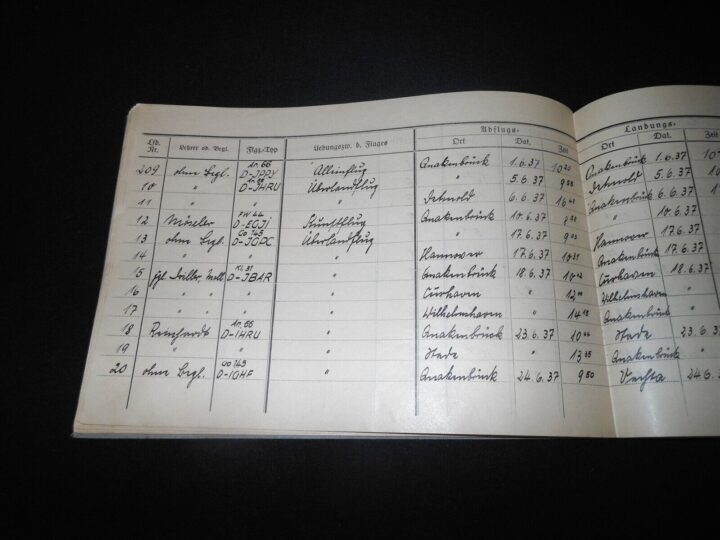 Abflugs- Landungs-
Lfd. Nr. Lehrer od. Begl. Flgz.-Typ Uebungszw. d. Fluges Ort Dat. Zeit Ort Dat. Zeit
209 ohne Begl. Ar. 66 D-JPPY Alleinflug Quakenbrück 1.6.37 10 20 Quakenbrück 1.6.37
10 " D-JHRU Überlandflug " 5.6.37 Detmold 5.6.37
11 " " " Detmold 6.6.37 Quakenbrück 6.6.37
12 FW 44 D-EGJI Kunstflug Quakenbrück 10.6.37 " 10.6.37
13 ohne Begl. Go 145 D-JOPC Überlandflug " 17.6.37 Hannover 17.6.37
14 " " " " Hannover 17.6.37 Quakenbrück 17.6.37
15 Kl. 31 D-JBAR " Quakenbrück 18.6.37 Cuxhaven 18.6.37
16 " " " Cuxhaven " Wilhelmshaven "
17 " " " Wilhelmshaven " 14 18 Quakenbrück "
18 Reinhardt Ar. 66 D-IHRU " Quakenbrück 23.6.37 Stade 23.6.37
19 " " " Stade " 13 35 Quakenbrück "
20 ohne Begl. Go 145 D-IOHF " Quakenbrück 24.6.37 9 50 Vechta 24.6